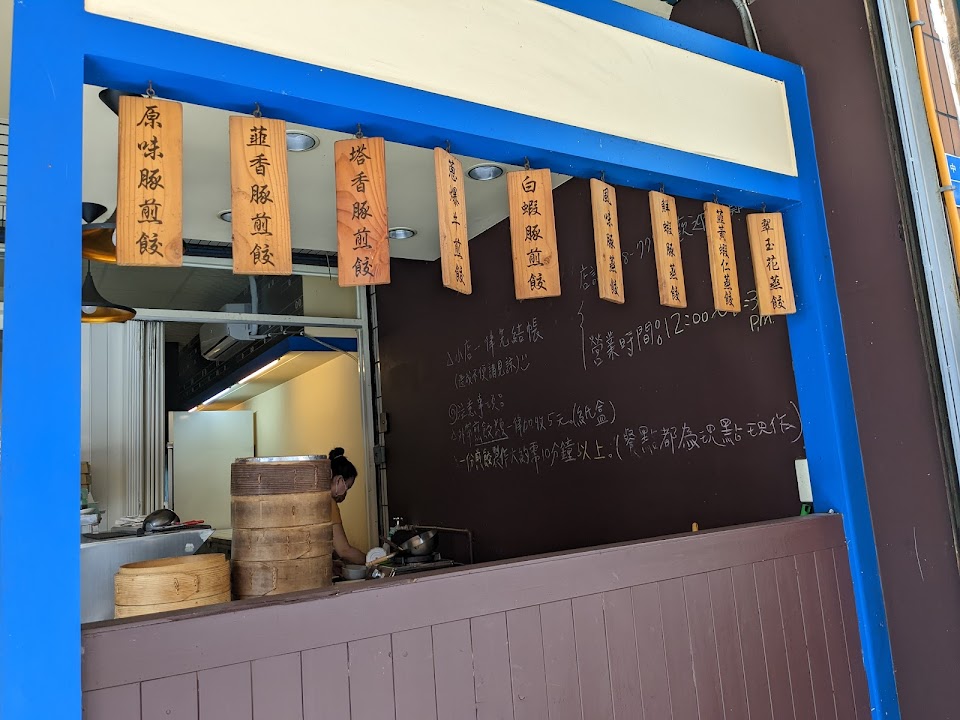 原味豚煎餃
韮香豚煎餃
塔香豚煎餃
蔥爆牛煎餃
白蝦豚煎餃
風味豚蒸餃
鮮蝦豚蒸餃
韮黃蝦仁蒸餃
翠玉花蒸餃
小店一律先結帳
營業時間:12:00
注意事項:
外帶煎餃類一律加收5元(紙盒)
一份煎餃製作大約需10分鐘以上。(餐點都為現點現作)
中